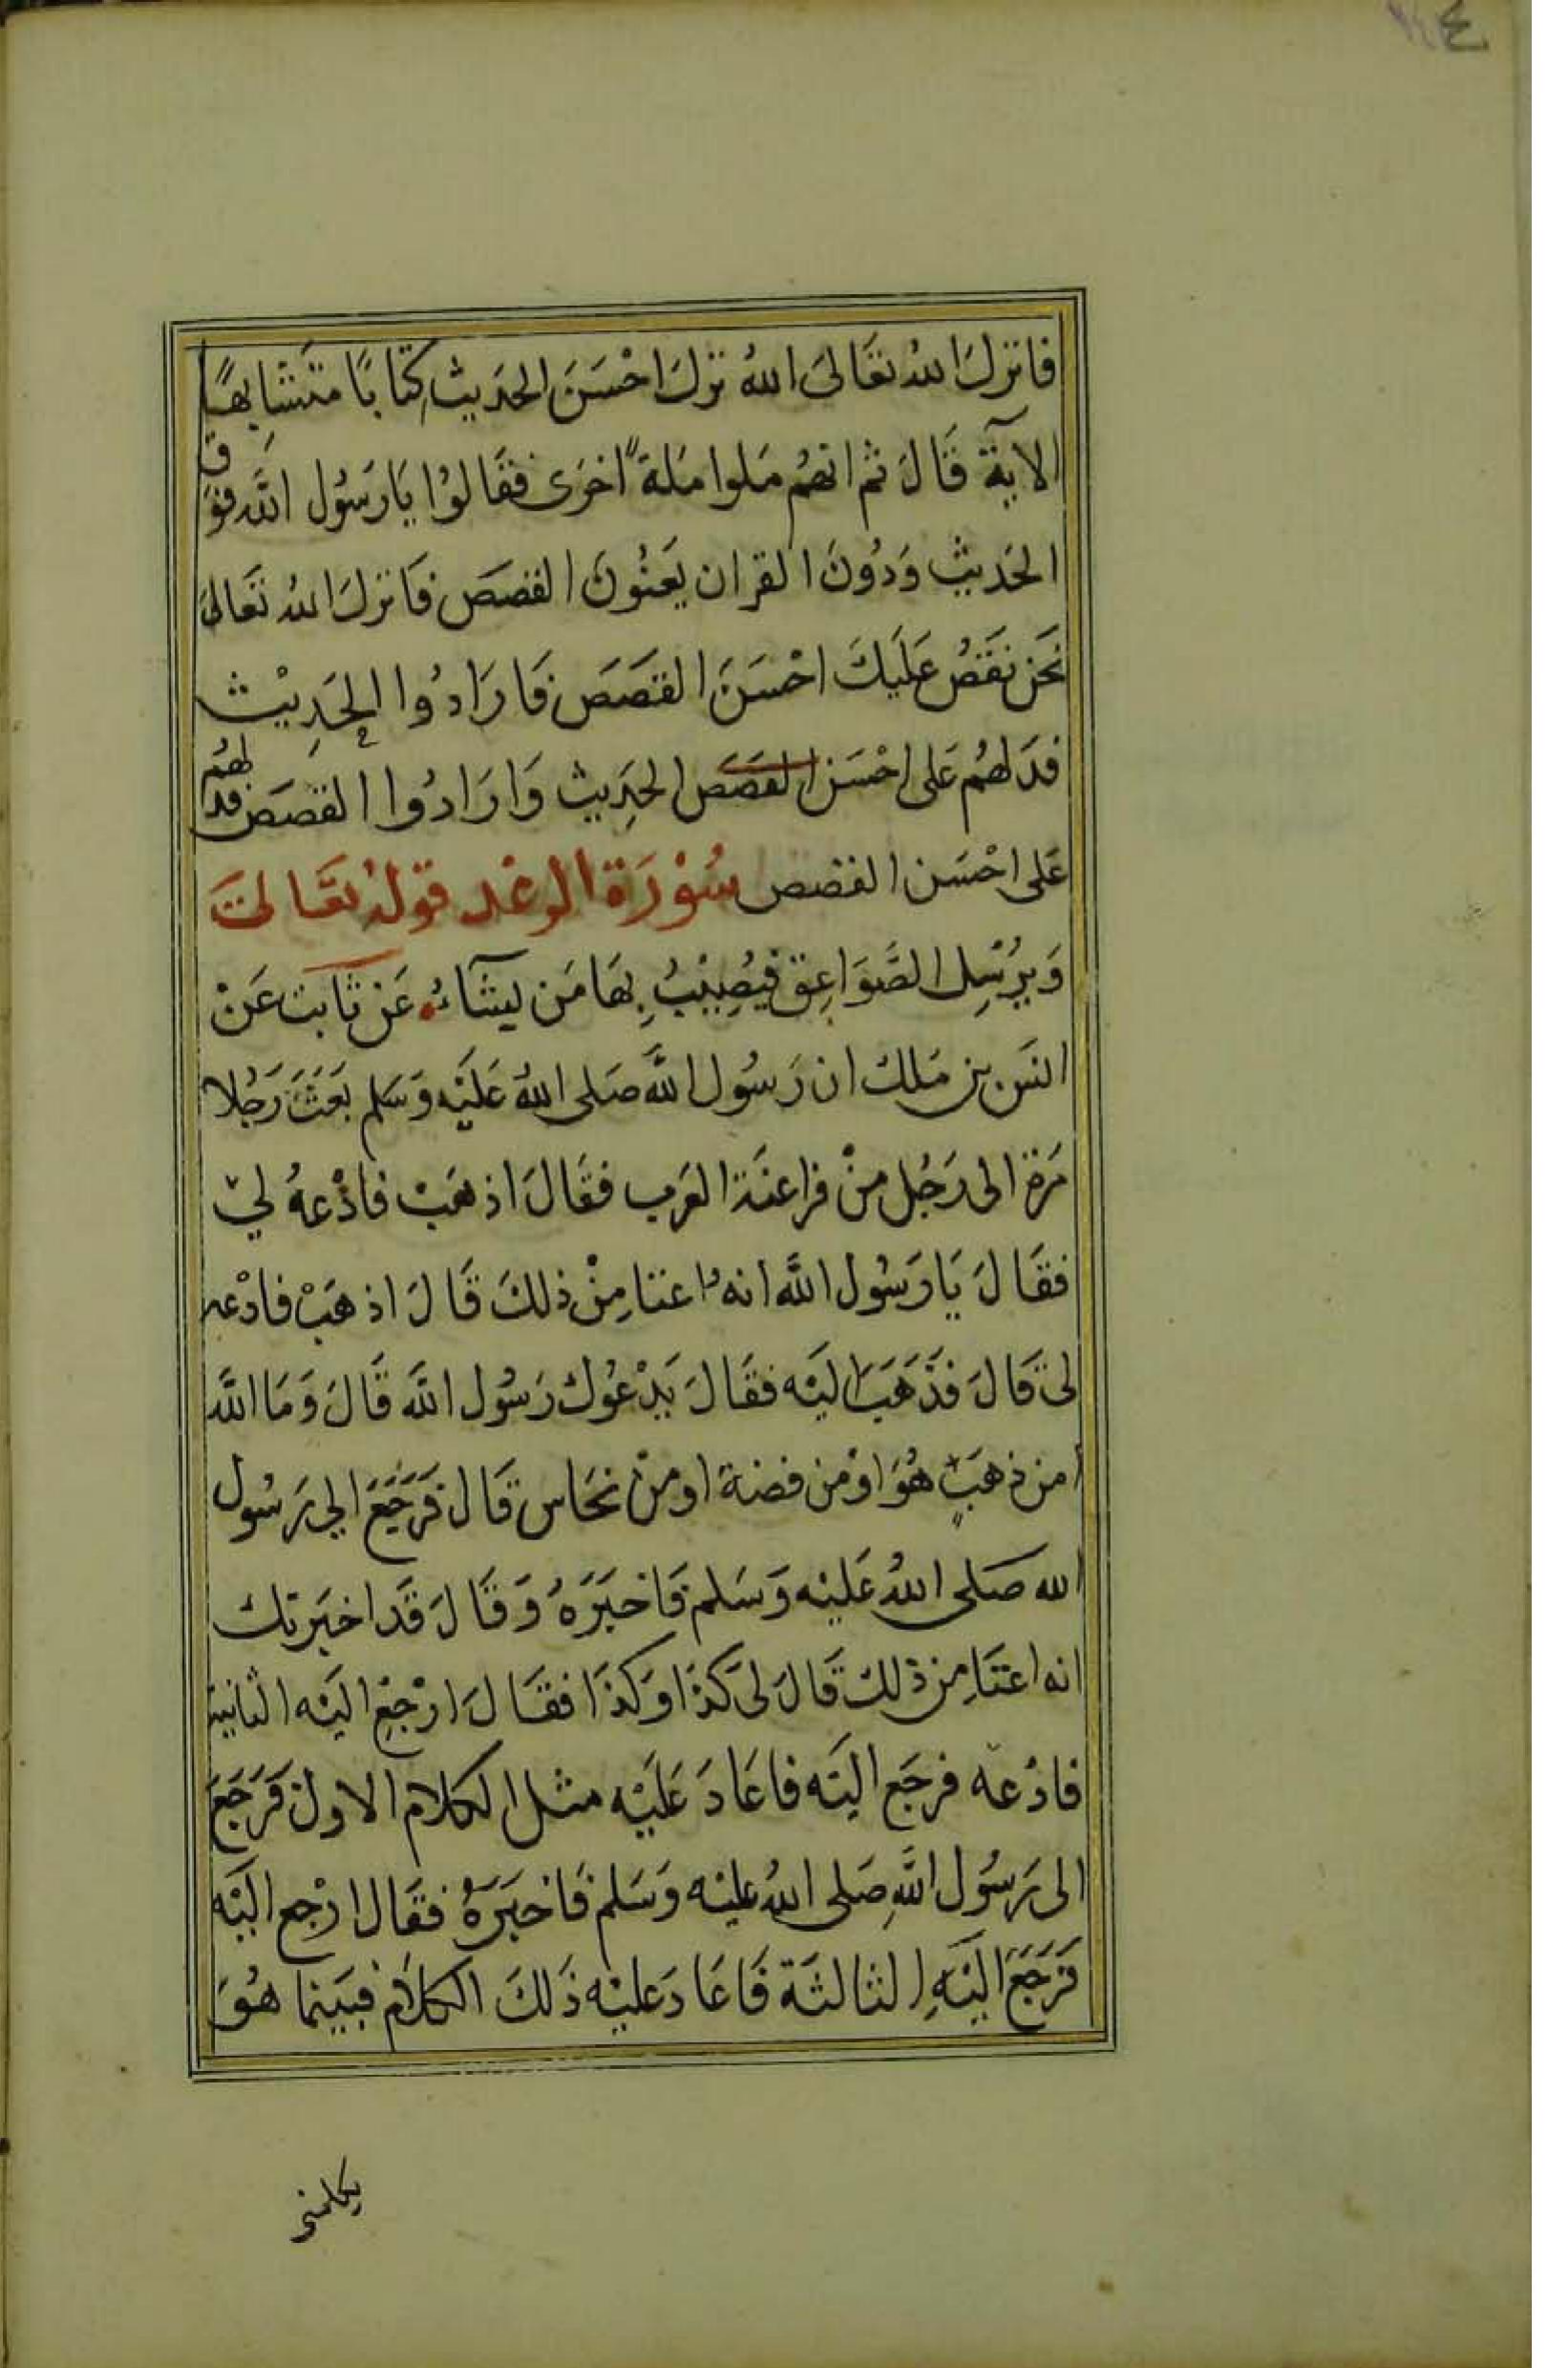 فانزلَ اللهُ تعَالىَ اللهُ نزلَ احْسَنَ الحدَيث كِتابًا متَشَابهًا
الآية قَالَ ثم انهُم مَلوا مَلة اخرَى فقَالوُا يَا رَسُول اللَّه فوَق
الحَديث وَدُونَ القران يَعنُونَ القصَصَ فَانزلَ اللهُ تعَالىَ
نحَن نقَصُ عَليَكَ احْسَنَ القصَصَ فَارَادُوا الحَدِيْث
فدَلهُم عَلى احْسَن القصَصَ الحدِيث وَارَادُوا القصَصَ فدَلهُم
عَلى احْسَن القصَص سُوْرَة الرعْد قوَلهُ تعَالىَ
وَيرُسْل الصَّوَاعِق فَيُصِيْبُ بهَا مَن يشَآءُ عَن ثابت عَنْ
انسَ بن مَلك ان رَسُول اللَّه صَلى اللهُ عَليَه وَسَلم بَعَثَ رَجُلا
مَرة الى رَجُل منْ فراعنَة العَرب فقَالَ اذهَبْ فادْعهُ لي
فقَالَ يَا رَسُول اللَّه انهُ اعتا مِنْ ذلكَ قَالَ اذهَبْ فادْعه
لىَ قَالَ فذَهَبَ اليَه فقَالَ يَدْعُوك رَسُول اللَّه قَالَ وَمَا اللَّه
امن ذهَبٍ هُوَ اوْمن فضة اومنْ نحَاس قَال فَرَجَعَ الي رَسُول
الله صَلى اللهُ عَليْه وَسَلم فَاخبَرَهُ وَقَالَ قَد اخبَرتك
انه اعتَا مِن ذلك قَالَ لىَ كذَا وَكذَا فقَالَ ارْجعِ اليَه الثانية
فادْعه فرجَع اليَه فاعَادَ عَليَه مثل الكلامَ الاول فَرَجَعَ
الى رَسُول اللَّهِ صَلى اللهُ عليْه وَسَلم فَاخبَرَهُ فقَال ارْجع اليَه
فَرَجَعَ اليَهِ الثالثَة فَاعَادَ عليْه ذَلكَ الكلامَ فبَينما هُوَ
يكلمني